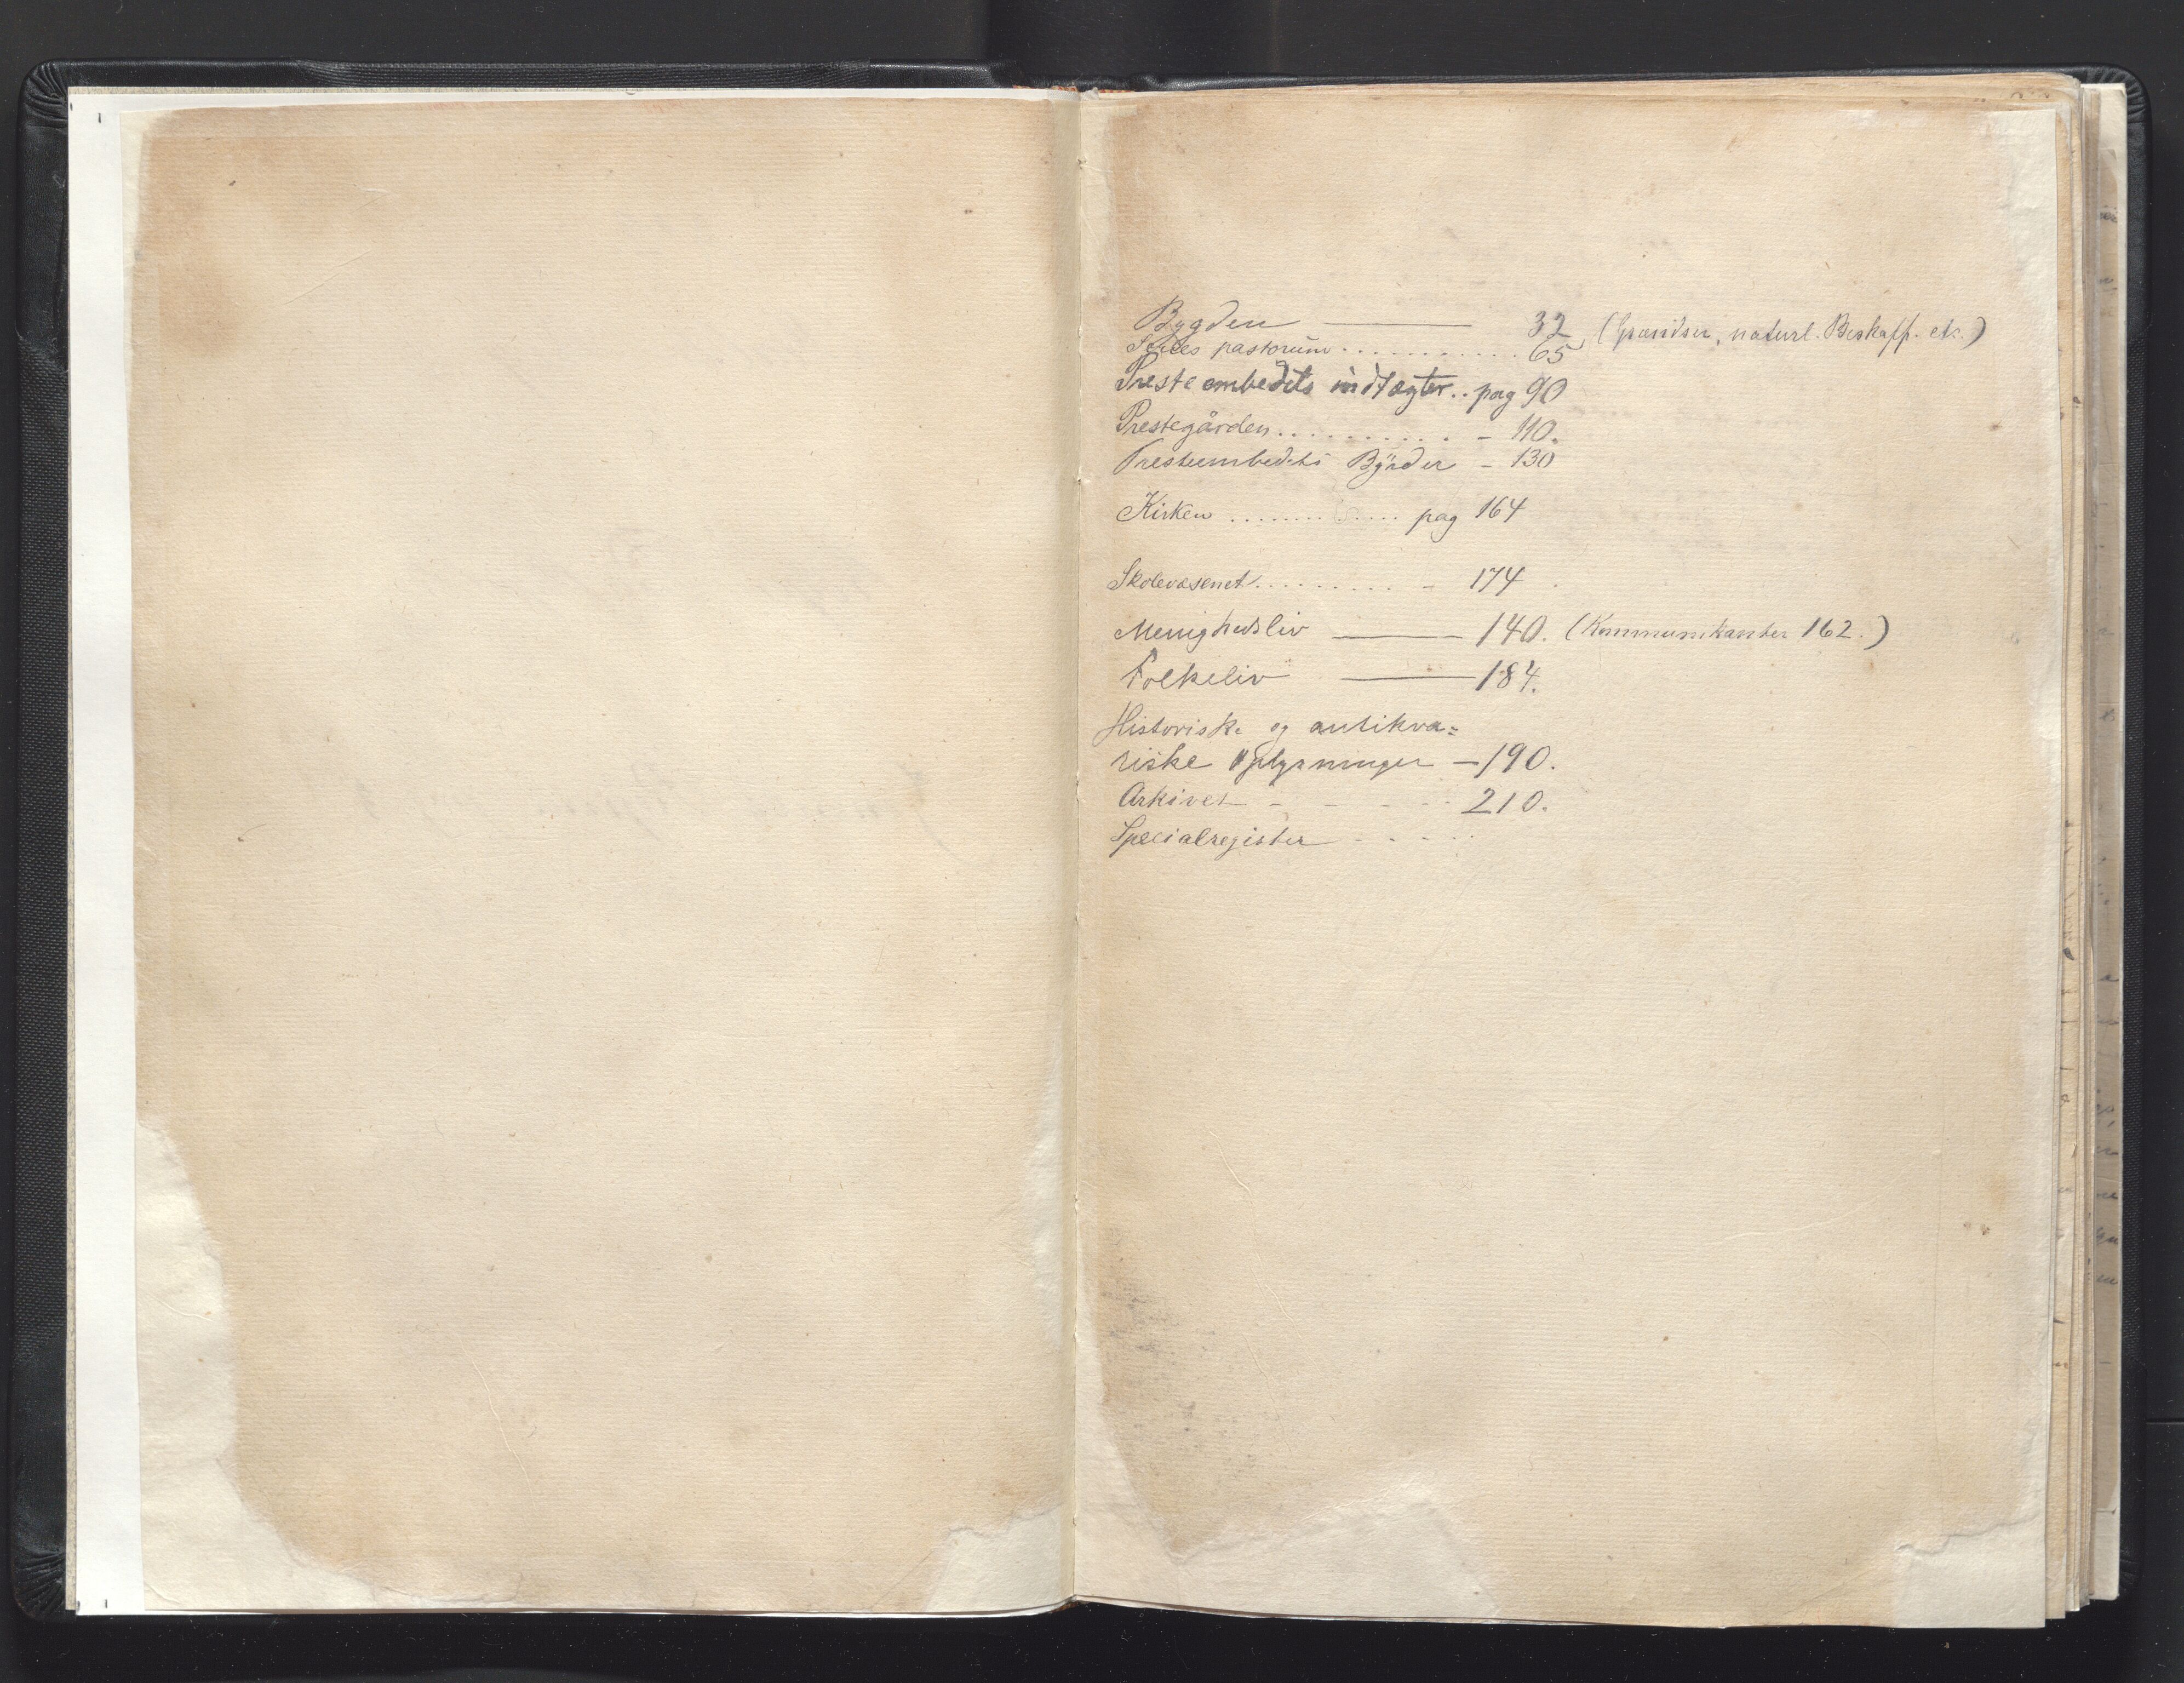 Bygden ——— 32 (Grændser, naturl. Beskaff. etc.)
Series pastorum . . . . . . . . . . . 65
Presteembedets indtægter . . pag 90
Prestegården . . . . . . . . . . - 110.
Presteembedets Byrder - 130
Kirken . . . . . . . . . . . . pag 164
Skolevæsenet . . . . . . . . . - 174
Menighedsliv ——— 140. (Kommunikanter 162.)
Folkeliv ——— 184.
Historiske og antikva=
riske Oplysninger - 190.
Arkivet - - - - - 210.
Specialregister - - - -